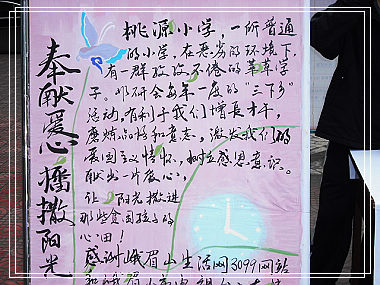 奉献爱心播撒阳光
桃源小学，一所普通
的小学，在恶劣的环境下，
有一群孜孜不倦的莘莘学
子。昨研会每年一度的“三下乡”
活动，有利于我们增长才干，
磨炼品格和意志，激发我们的
爱国主义情怀，树立感恩意识。
献出一片爱心，
让阳光撒进
那些贫困孩子的
心田！
感谢峨眉山生活网3099网站